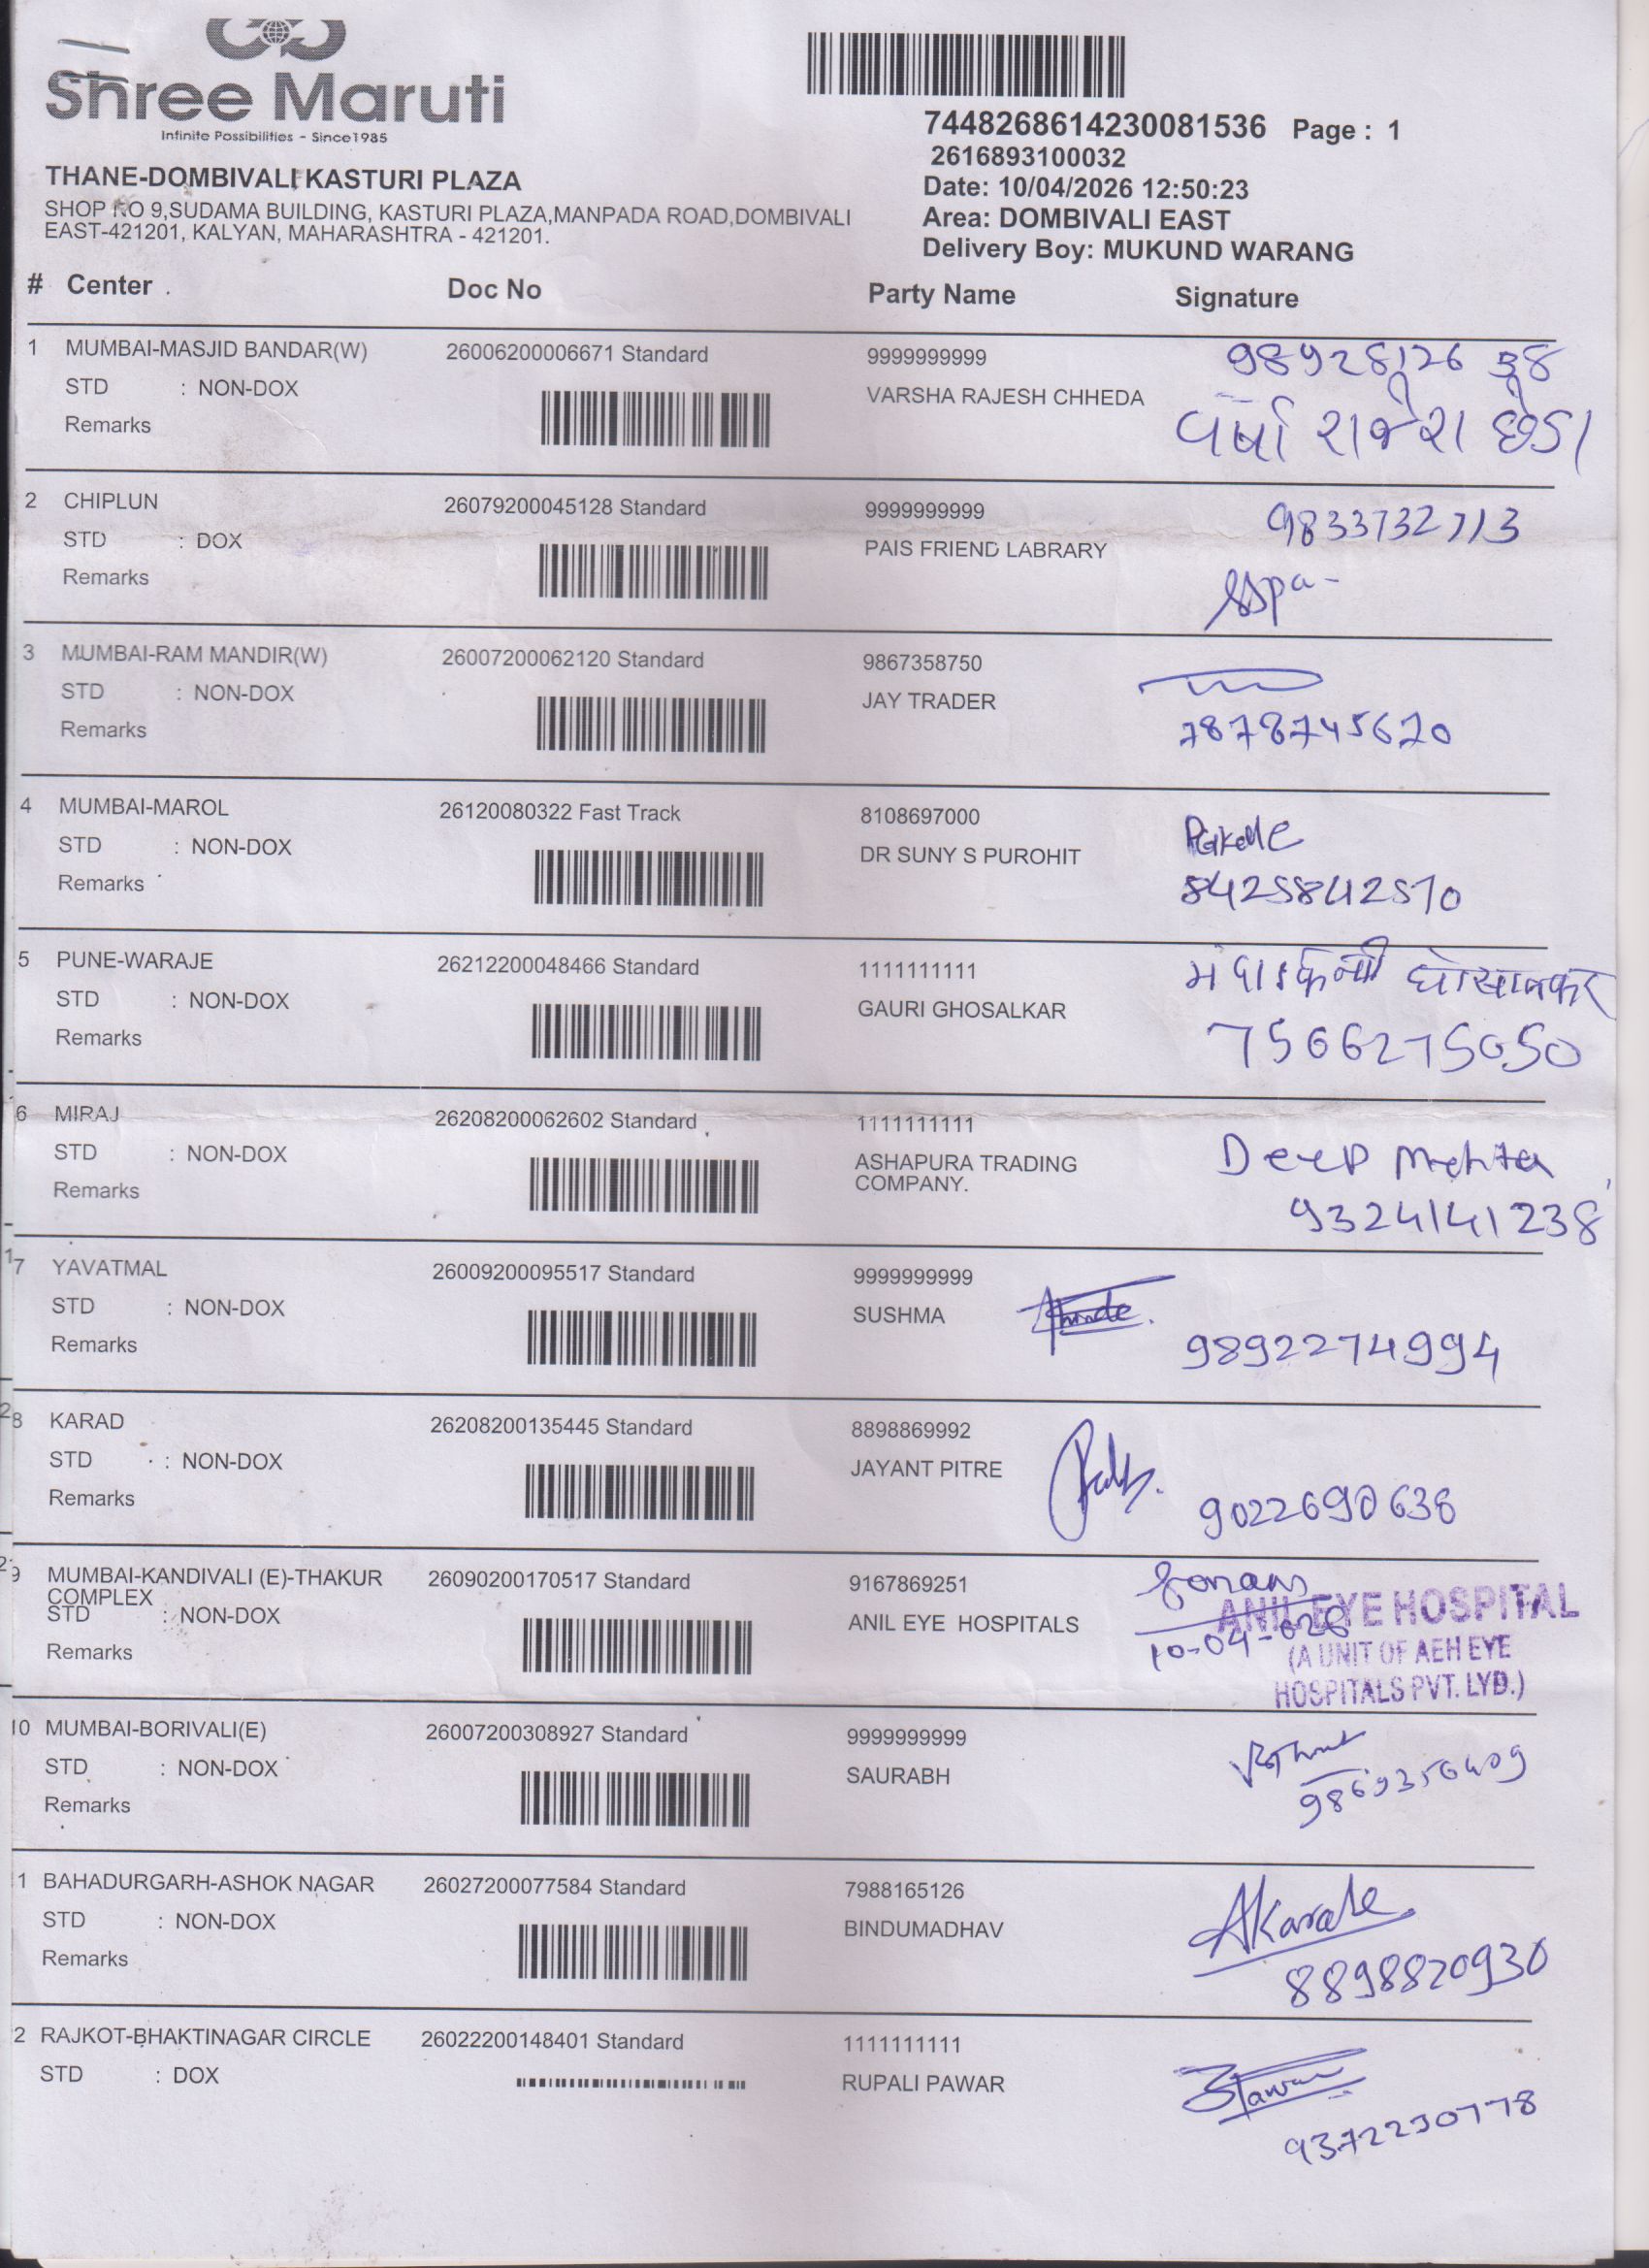 Shree Maruti
Infinite Possibilities - Since1985
7448268614230081536 Page : 1
2616893100032
THANE-DOMBIVALI KASTURI PLAZA
Date: 10/04/2026 12:50:23
SHOP NO 9,SUDAMA BUILDING, KASTURI PLAZA,MANPADA ROAD,DOMBIVALI
EAST-421201, KALYAN, MAHARASHTRA - 421201.
Area: DOMBIVALI EAST
Delivery Boy: MUKUND WARANG
# Center Doc No Party Name Signature
1 MUMBAI-MASJID BANDAR(W) 26006200006671 Standard 9999999999
STD : NON-DOX VARSHA RAJESH CHHEDA
Remarks વર્ષા રાજેશ છેડા
2 CHIPLUN 26079200045128 Standard 9999999999 9833732713
STD : DOX PAIS FRIEND LABRARY
Remarks
3 MUMBAI-RAM MANDIR(W) 26007200062120 Standard 9867358750
STD : NON-DOX JAY TRADER
Remarks 7878745670
4 MUMBAI-MAROL 26120080322 Fast Track 8108697000
STD : NON-DOX DR SUNY S PUROHIT
Remarks 8425842570
5 PUNE-WARAJE 26212200048466 Standard 1111111111 घोसाळकर
STD : NON-DOX GAURI GHOSALKAR
Remarks 7506275050
6 MIRAJ 26208200062602 Standard 1111111111
STD : NON-DOX ASHAPURA TRADING
COMPANY. Deep Mehta
Remarks 9324141238
7 YAVATMAL 26009200095517 Standard 9999999999
STD : NON-DOX SUSHMA
Remarks 9892274994
8 KARAD 26208200135445 Standard 8898869992
STD : NON-DOX JAYANT PITRE
Remarks 9022690638
9 MUMBAI-KANDIVALI (E)-THAKUR
COMPLEX 26090200170517 Standard 9167869251
STD : NON-DOX ANIL EYE HOSPITALS ANIL EYE HOSPITAL
Remarks (A UNIT OF AEH EYE
HOSPITALS PVT. LYD.)
10 MUMBAI-BORIVALI(E) 26007200308927 Standard 9999999999
STD : NON-DOX SAURABH 9869356409
Remarks
1 BAHADURGARH-ASHOK NAGAR 26027200077584 Standard 7988165126
STD : NON-DOX BINDUMADHAV AKarale
Remarks 8898820930
2 RAJKOT-BHAKTINAGAR CIRCLE 26022200148401 Standard 1111111111
STD : DOX RUPALI PAWAR
9372230778